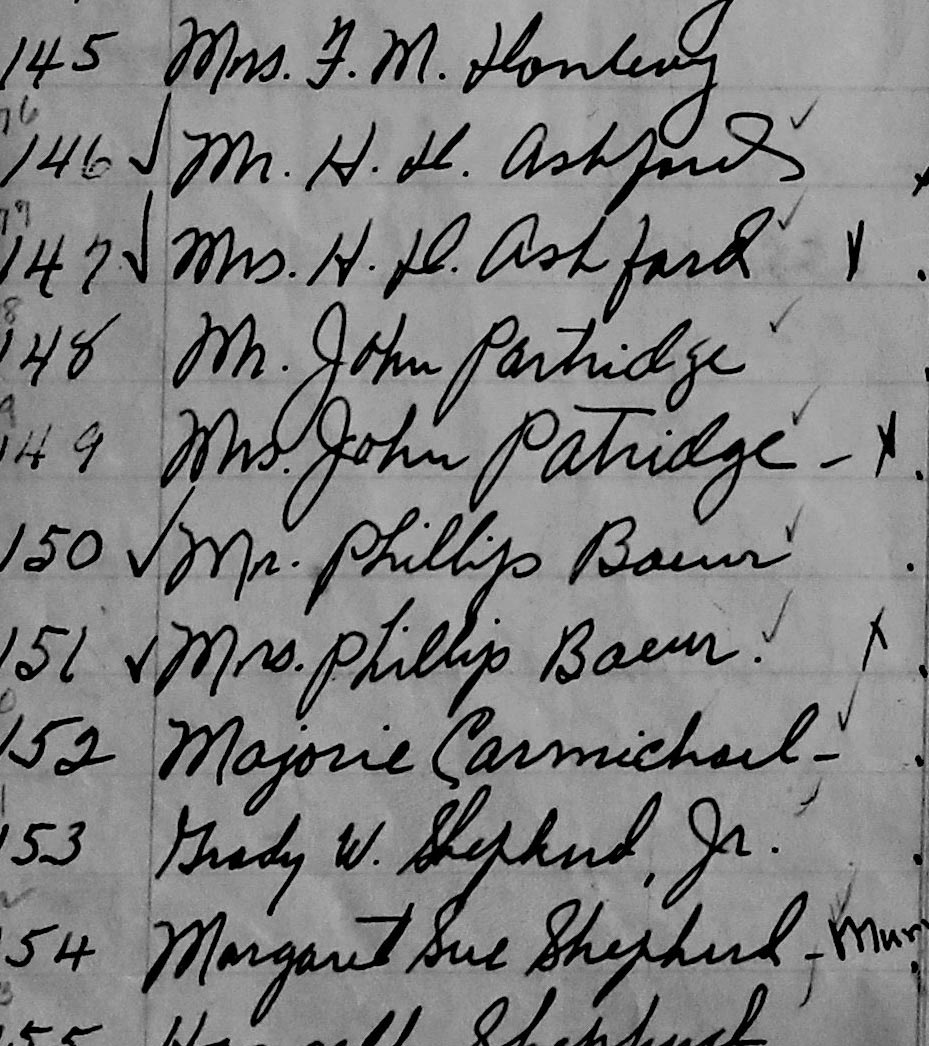 145 Mrs. F. M.
146 ✓ Mr. H. H. Ashford ✓ x
147 ✓ Mrs. H. H. Ashford ✓ x .
148 Mr. John Partridge ✓ .
149 Mrs. John Patridge ✓ - x .
150 ✓ Mr. Phillip Baeur ✓ .
151 ✓ Mrs. Phillip Baeur. ✓ x .
152 Majorie Carmichael - ✓ .
153 Grady W. Shepherd, Jr. .
154 Margaret Sue Shepherd -
155 Shepherd